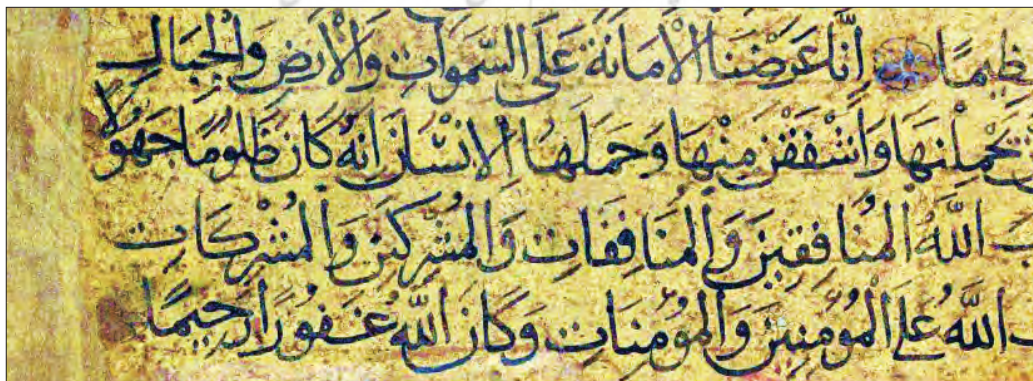 ظيمًا إِنَّا عَرَضْنَا الْأَمَانَةَ عَلَى السَّمَوَاتِ وَالْأَرْضِ وَالْجِبَالِ
يَحْمِلْنَهَا وَأَشْفَقْنَ مِنْهَا وَحَمَلَهَا الْإِنْسَانُ إِنَّهُ كَانَ ظَلُومًا جَهُولًا
ب اللَّهُ الْمُنَافِقِينَ وَالْمُنَافِقَاتِ وَالْمُشْرِكِينَ وَالْمُشْرِكَاتِ
ب اللَّهُ عَلَى الْمُؤْمِنِينَ وَالْمُؤْمِنَاتِ وَكَانَ اللَّهُ غَفُورًا رَحِيمًا